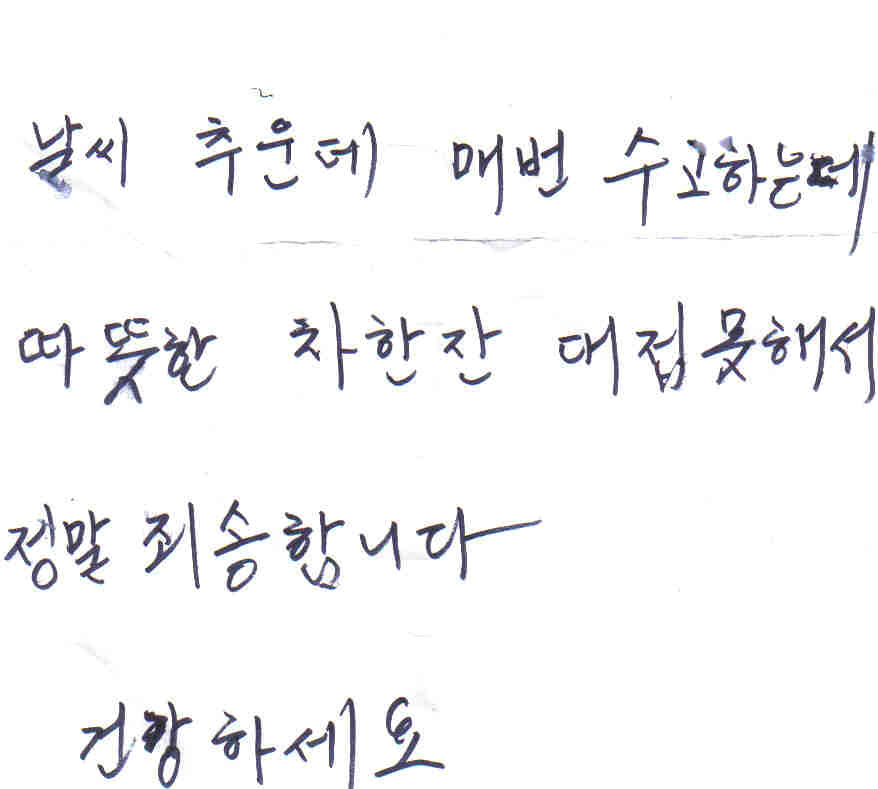 날씨 추운데 매번 수고하는데
따뜻한 차한잔 대접못해서
정말 죄송합니다
건강하세요